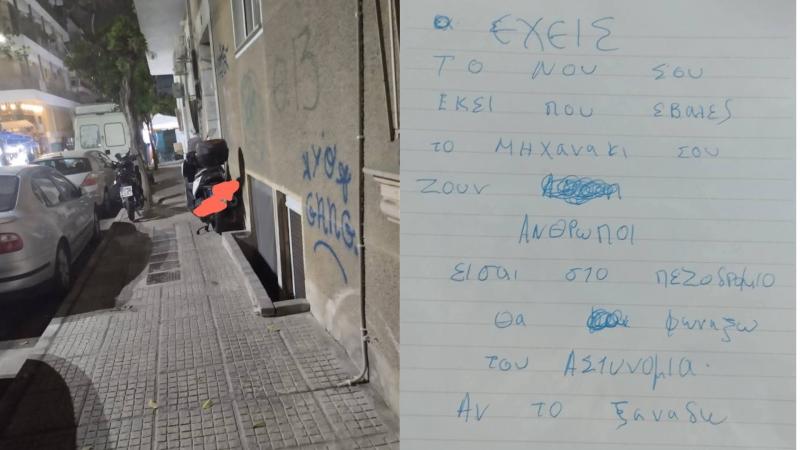 GANG
ΕΧΕΙΣ
ΤΟ ΝΟΥ ΣΟΥ
ΕΚΕΙ ΠΟΥ ΕΒΑΛΕΣ
ΤΟ ΜΗΧΑΝΑΚΙ ΣΟΥ
ΖΟΥΝ
ΑΝΘΡΩΠΟΙ
ΕΙΣΑΙ ΣΤΟ ΠΕΖΟΔΡΟΜΙΟ
ΘΑ ΦωΝΑξω
ΤΟΥ ΑΣΤΥΝΟΜΙΑ.
ΑΝ ΤΟ ξαΝαδω